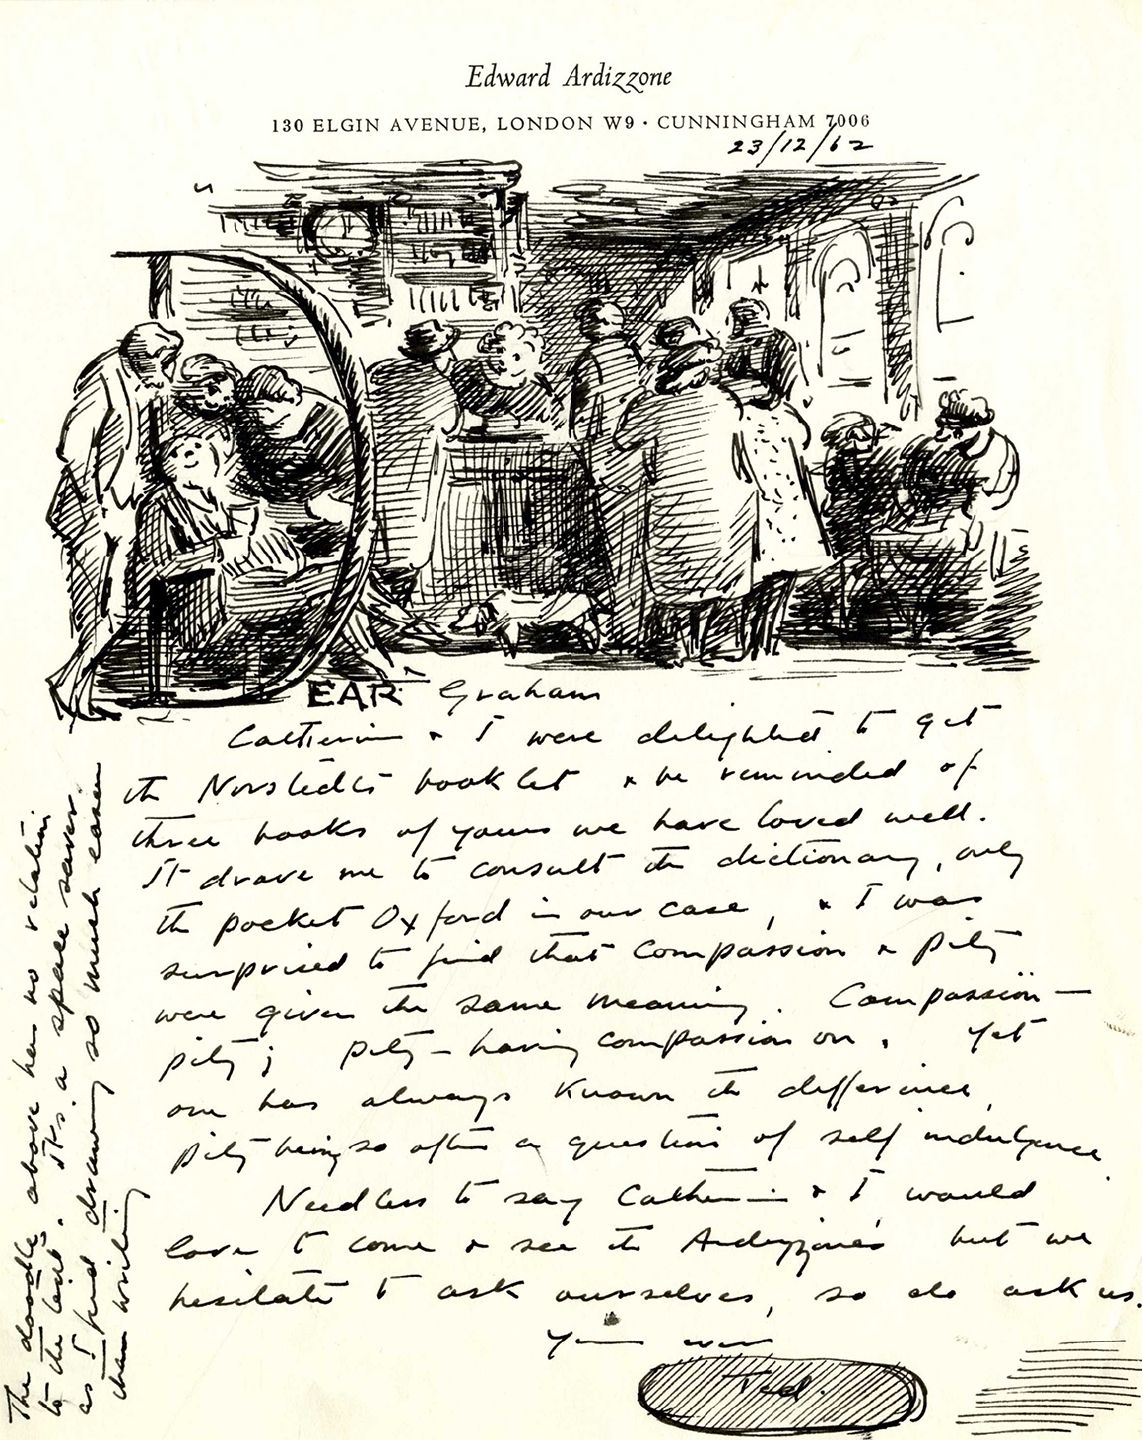 Edward Ardizzone
130 ELGIN AVENUE, LONDON W9 · CUNNINGHAM 7006
23/12/62
DEAR Graham
Catherine & I were delighted to get
the Norstedts booklet & be reminded of
three books of yours we have loved well.
It drove me to consult the dictionary, only
the pocket Oxford in our case, & I was
surprised to find that compassion & pity
were given the same meaning. Compassion —
pity; pity — having compassion on. Yet
one has always known the difference,
pity being so often a question of self indulgence.
Needless to say Catherine & I would
love to come & see the Ardizzone's but we
hesitate to ask ourselves, so do ask us.
Yours ever
Ted.
The doodle above has no relation
to the text. It's a space saver
as I find drawing so much easier
than writing